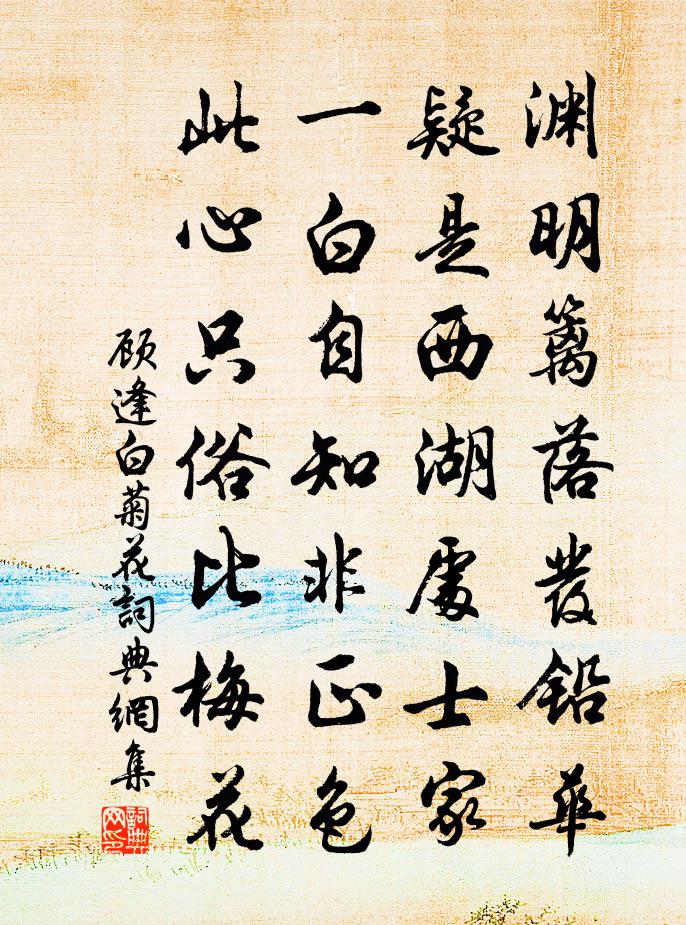 渊明篱落发铅华
疑是西湖处士家
一白自知非正色
此心只俗比梅花
顾逢白菊花词典網集
詞典网印